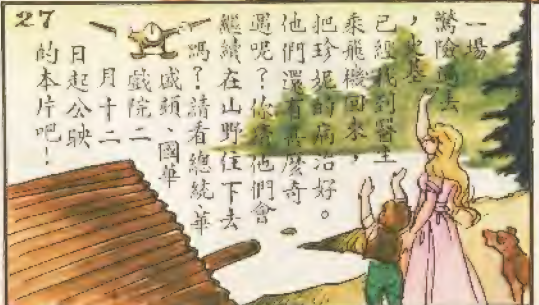 27
一場
驚險過去
，史基
已經找到醫生
乘飛機回來，
把珍妮的病治好。
他們還有甚麼奇
遇呢？你猜他們會
繼續在山野住下去
嗎？請看總統、華
盛頓、國華
戲院二
月十二
日起公映
的本片吧！